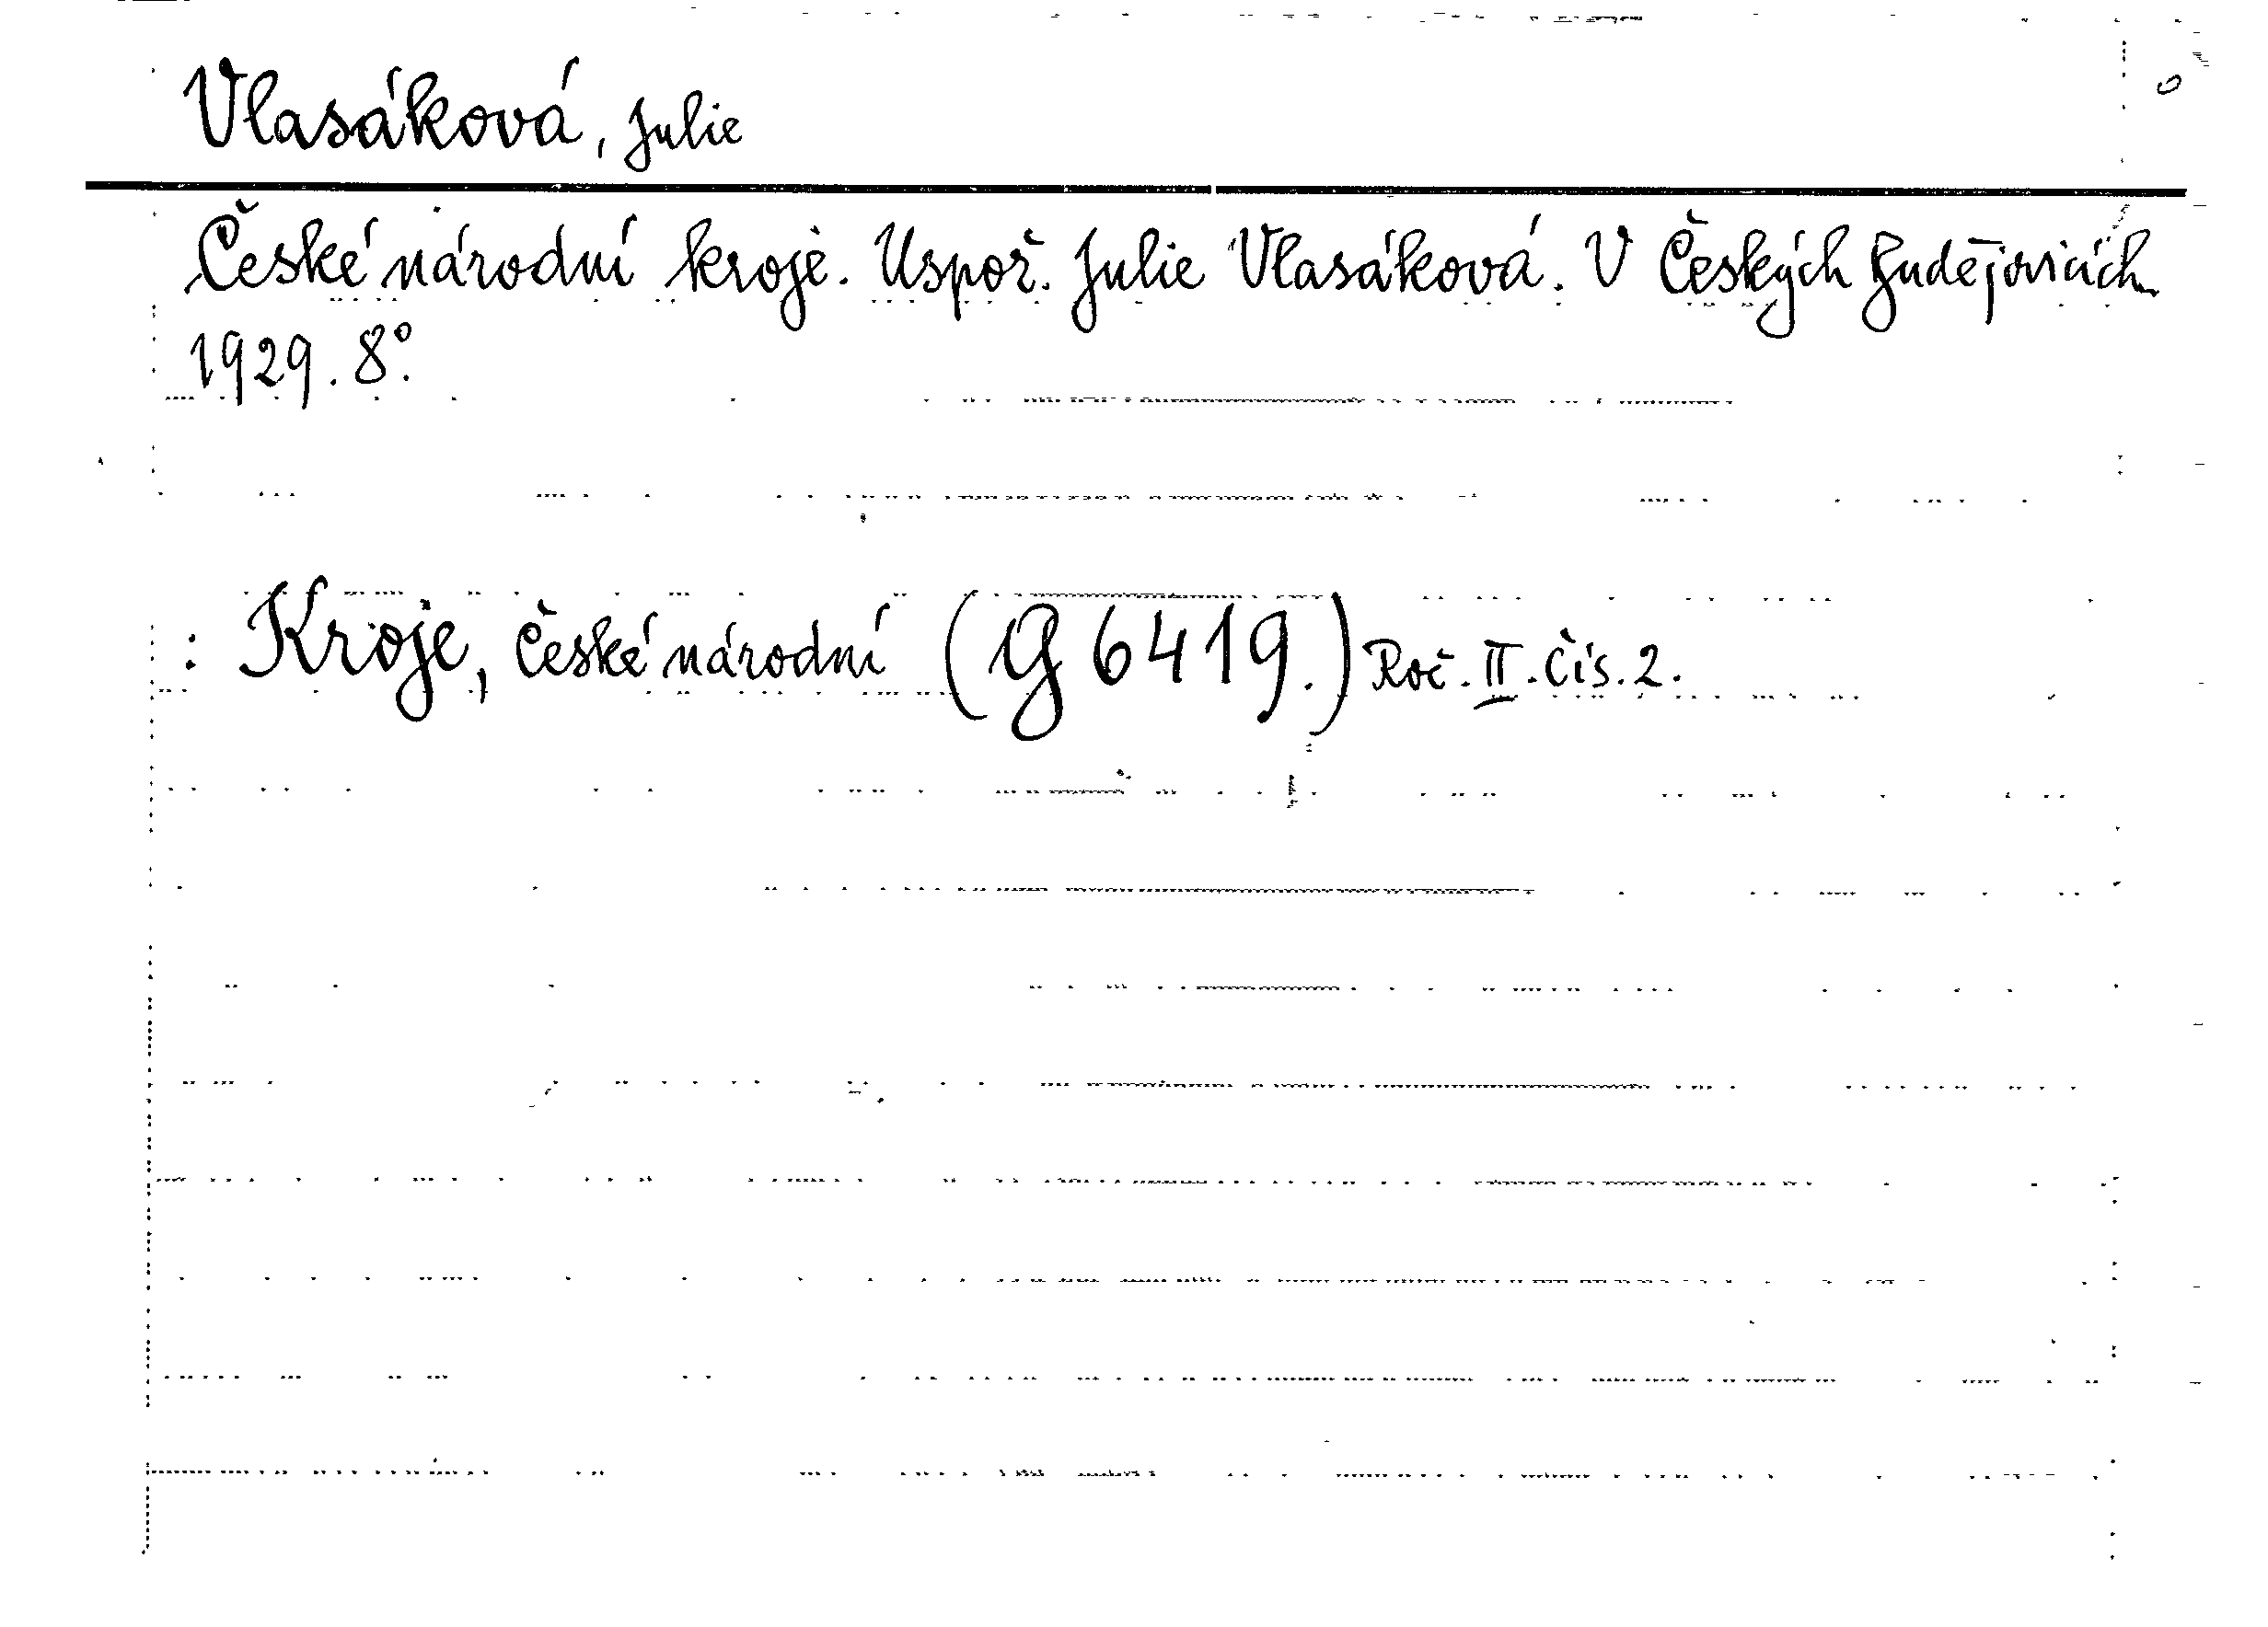 Vlasáková, Julie
České národní kroje. Uspoř. Julie Vlasáková. V Českých Budějovicích
1929. 8°.
: Kroje, české národní (G 6419.) Roč. II. Čís. 2.